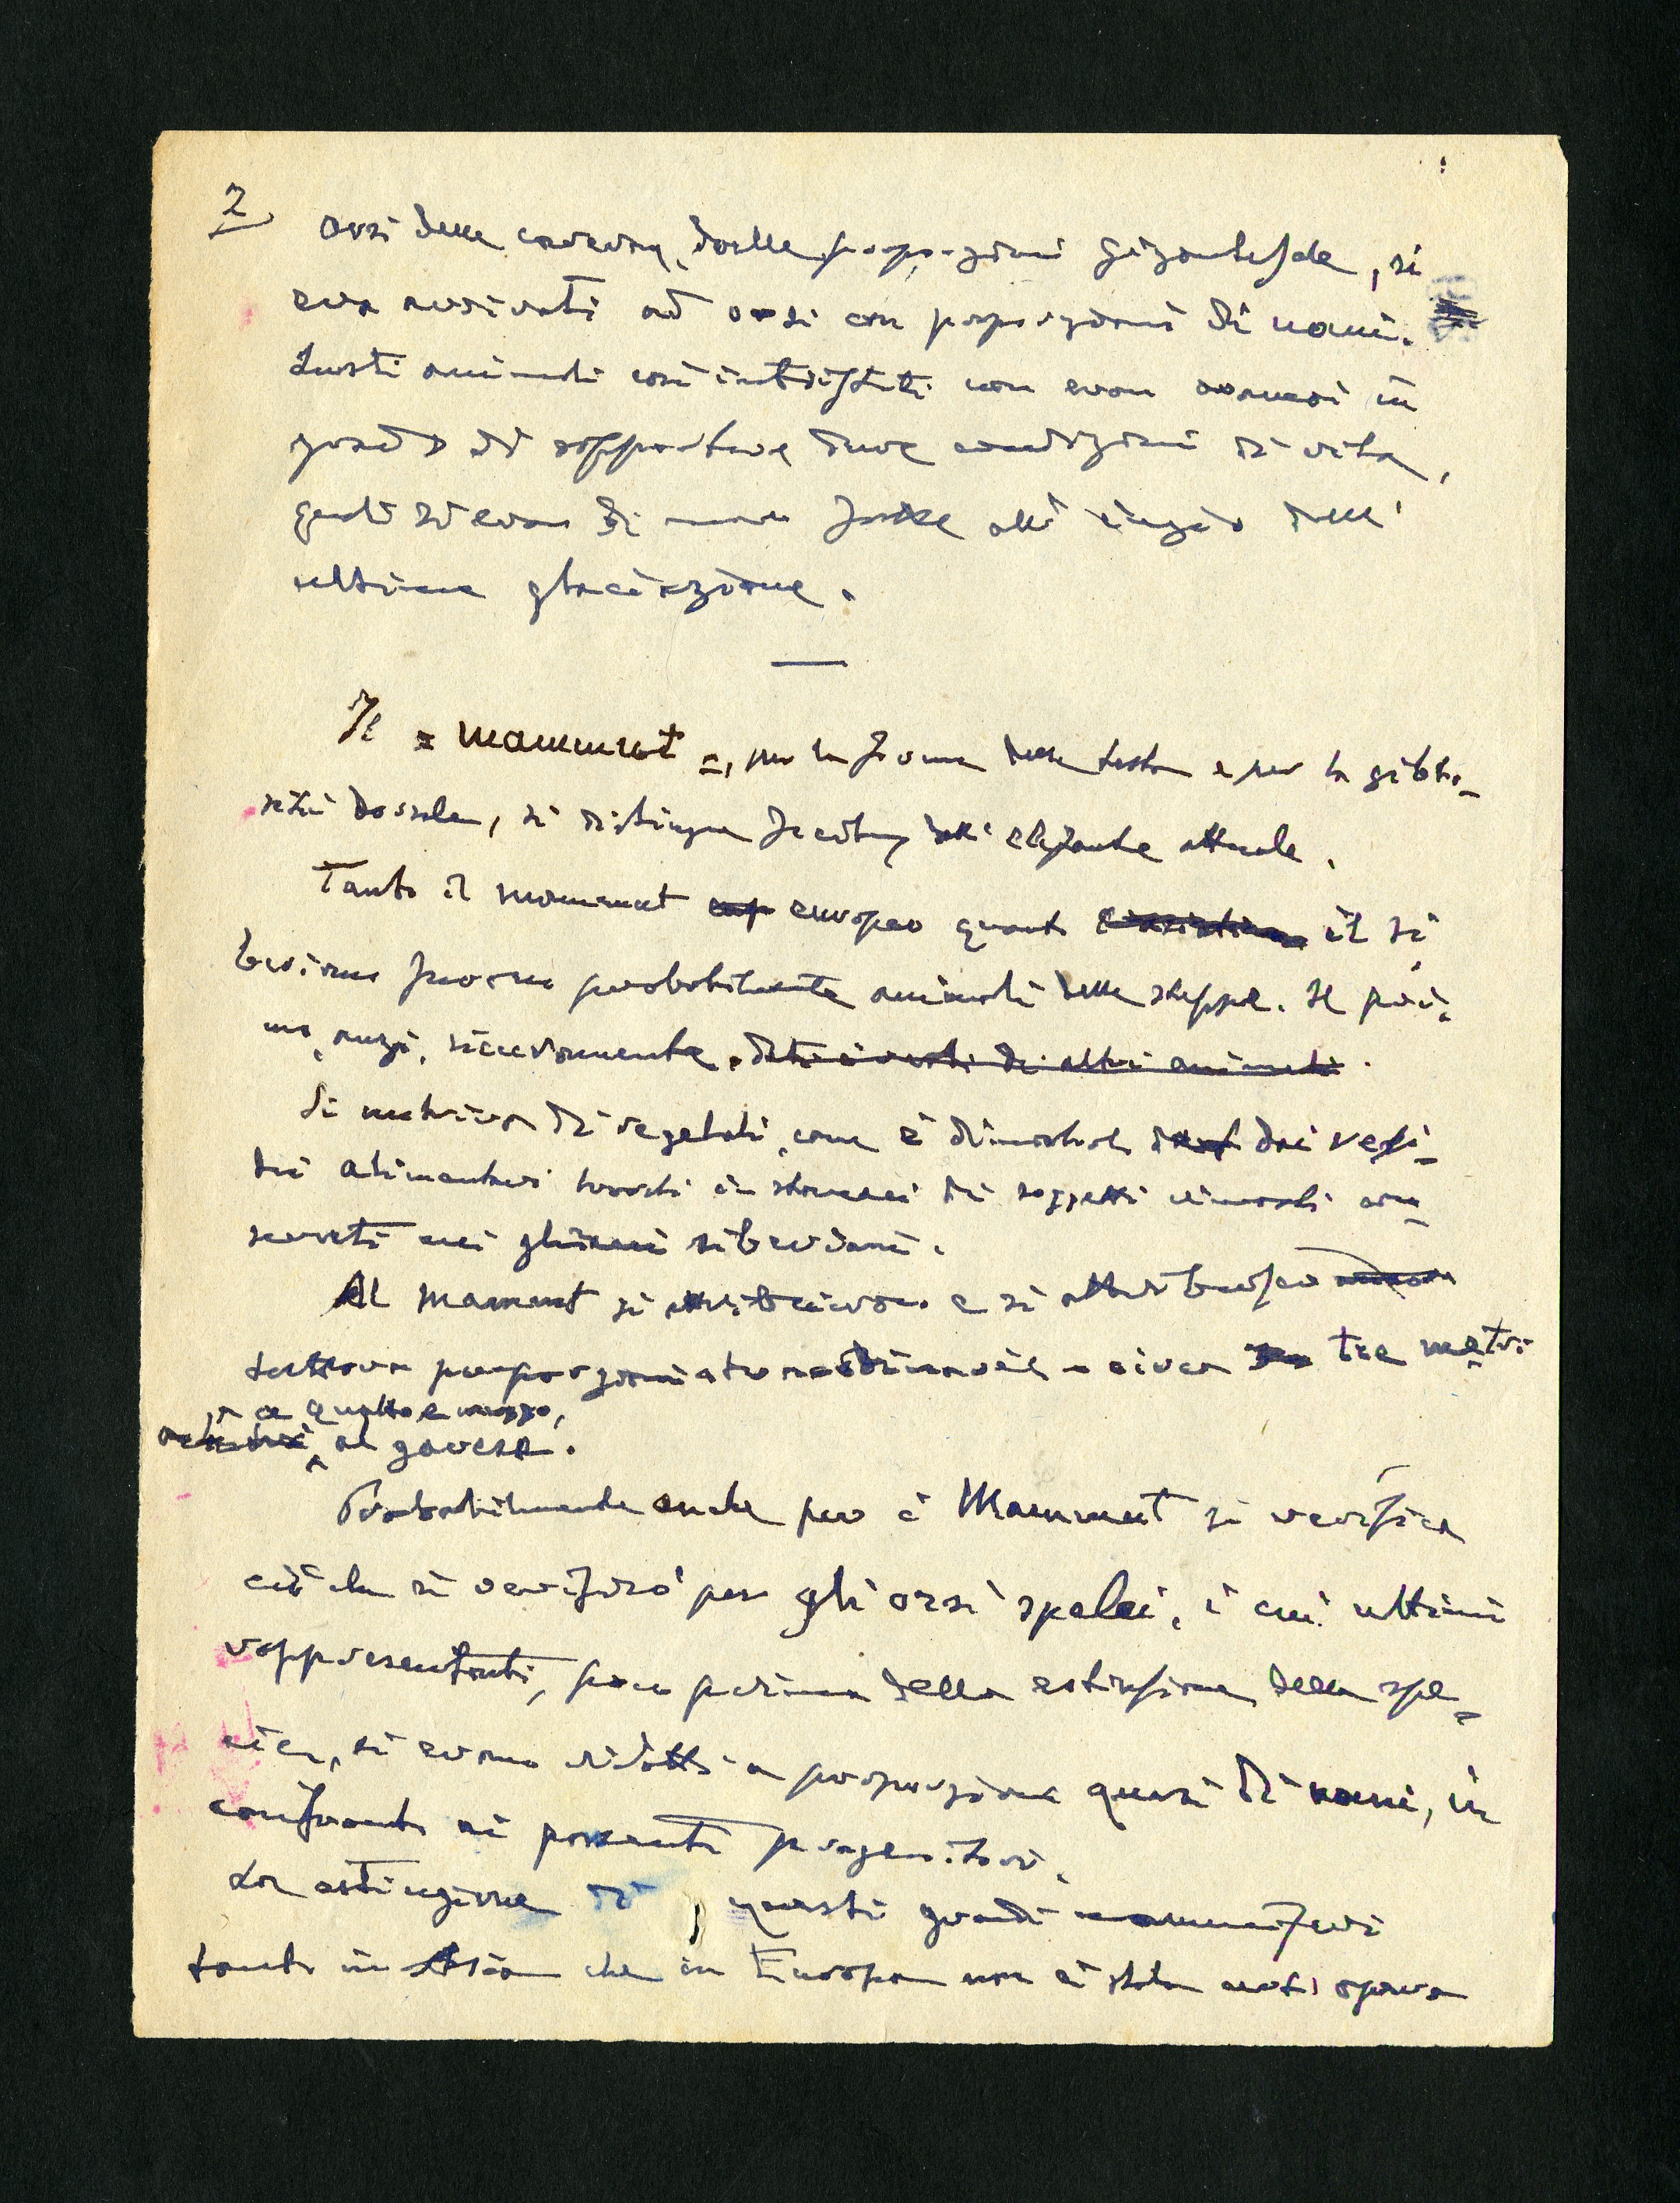 2
orsi delle caverne, dalle proporzioni gigantesche, si
era arrivati ad orsi con proporzioni di nani.
Questi animali così intristiti non eran oramai in
grado di sopportare dure condizioni di vita,
quali si eran di nuovo fatte all'inizio dell'
ultima glaciazione.
Il = mammut =, per la forma della testa e per la gibbo-
sità dorsale, si distingue facilm. dall'elefante attuale.
Tanto il mammut eup europeo quanto l'asiatico il si
beriano furono probabilmente animali delle steppe. Il pri-
mo, anzi, sicuramente, dati i resti di altri animali.
Si nutriva di vegetali, come è dimostrato dai resi-
dui alimentari trovati in stomaci di soggetti rimasti con
servati nei ghiacci siberiani.
Al mammut si attribuivano e si attribuiscono
tuttora proporzioni straordinarie - circa tre metri
a quattro e mezzo,
al garrese.
Probabilmente anche per i Mammut si verificò
ciò che si verificò per gli orsi spelei, i cui ultimi
rappresentanti, poco prima della estinzione della spe-
cie, si erano ridotti a proporzioni quasi di nani, in
confronto ai possenti progenitori.
La estinzione di questi grandi mammiferi
tanto in Asia che in Europa non è stata certo opera